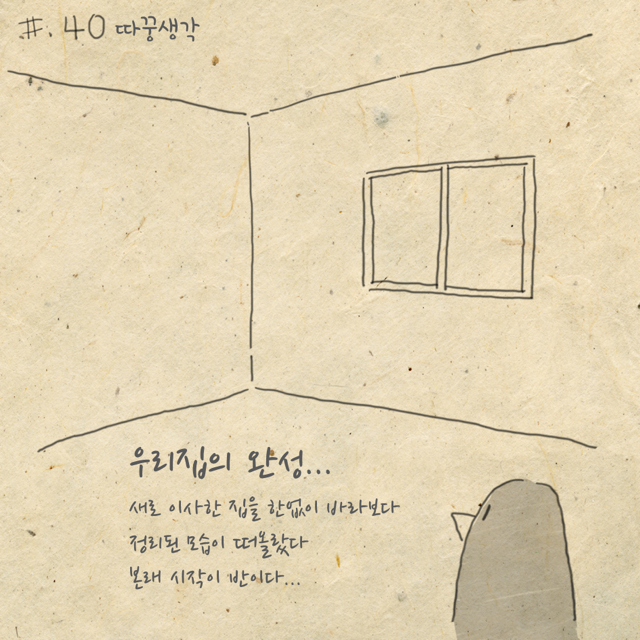 #. 40 따꿍생각
우리집의 완성...
새로 이사한 집을 한없이 바라보다
정리된 모습이 떠올랐다
본래 시작이 반이다...